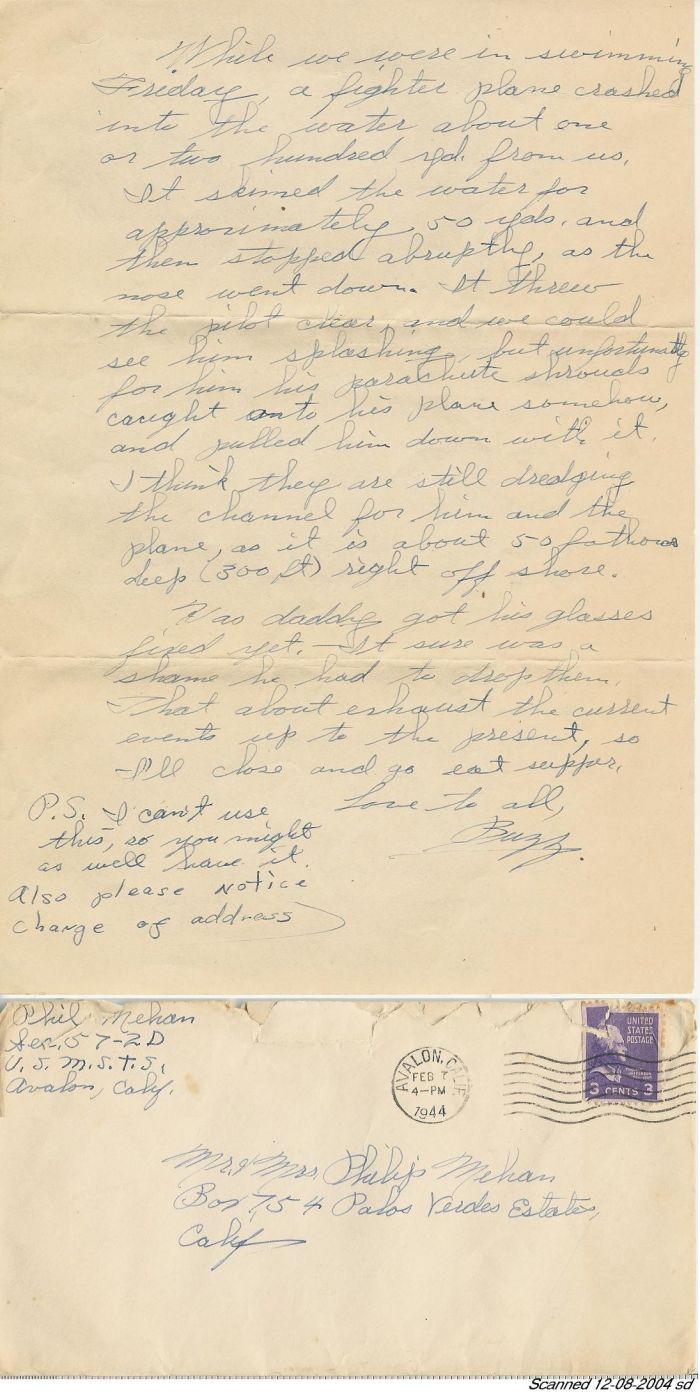 While we were in swimming
Friday, a fighter plane crashed
into the water about one
or two hundred yd. from us.
It skimed the water for
approximately 50 yds. and
then stopped abruptly, as the
nose went down. It threw
the pilot clear, and we could
see him splashing, but unfortunatly
for him his parachute shrouds
caught onto his plane somehow,
and pulled him down with it.
I think they are still dredging
the channel for him and the
plane, as it is about 50 fathoms
deep (300 ft) right off shore.
Has daddy got his glasses
fixed yet. It sure was a
shame he had to drop them.
That about exhaust the current
events up to the present, so
I'll close and go eat supper.
Love to all,
Buzz.
P.S. I can't use
this, so you might
as well have it.
Also please notice
change of address
Phil Mehan
Sec. 57-2D
U.S.M.S.T.S.
Avalon, Calif.
AVALON, CALIF.
FEB 7
4-PM
1944
UNITED
STATES
POSTAGE
3 CENTS 3
Mr. & Mrs. Philip Mehan
Box 754 Palos Verdes Estates,
Calif
Scanned 12-08-2004 sd